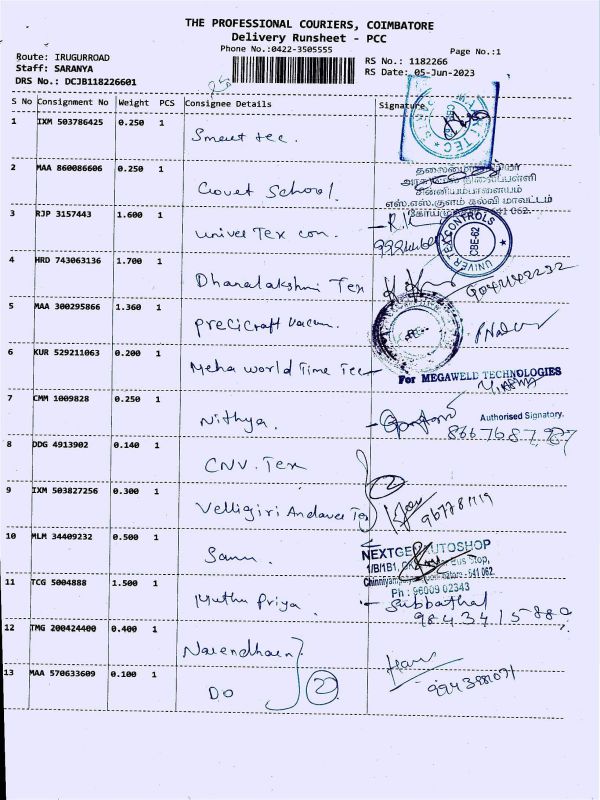 THE PROFESSIONAL COURIERS, COIMBATORE
Delivery Runsheet - PCC
Phone No.:0422-3505555
Page No.:1
Route: IRUGURROAD
Staff: SARANYA
DRS No.: DCJB118226601
RS No.: 1182266
RS Date: 05-Jun-2023
S No Consignment No Weight PCS Consignee Details Signature
1 IXM 503786425 0.250 1 Smart tec.
2 MAA 860086606 0.250 1 Govt School.
தலைமையாசிரியர்
அரசு மேல்நிலைப்பள்ளி
சின்னியம்பாளையம்
எஸ்.எஸ்.குளம் கல்வி மாவட்டம்
641 062.
3 RJP 3157443 1.600 1 Univer Tex con.
UNIVER TEX CONTROLS
CBE-62
4 HRD 743063136 1.700 1 Dhanalakshmi Tex
9047142232
5 MAA 300295866 1.360 1 Precicraft Vacum.
6 KUR 529211063 0.200 1 Meha world Time Tec
For MEGAWELD TECHNOLOGIES
Authorised Signatory.
7 CMM 1009828 0.250 1 Nithya.
8667687927
8 DDG 4913902 0.140 1 CNV. Tex
9 IXM 503827256 0.300 1 Velligiri Andavar Tex
2
10 MLM 34409232 0.500 1
NEXTGEN AUTOSHOP
1/B/1B1, Bus Stop,
Chinniyampalayam, Coimbatore - 641 062.
Ph : 96009 02343
11 TCG 5004888 1.500 1 Muthu Priya. - Subbathal
9843415880
12 TMG 200424400 0.400 1 Narendhara
13 MAA 570633609 0.100 1 DO
2